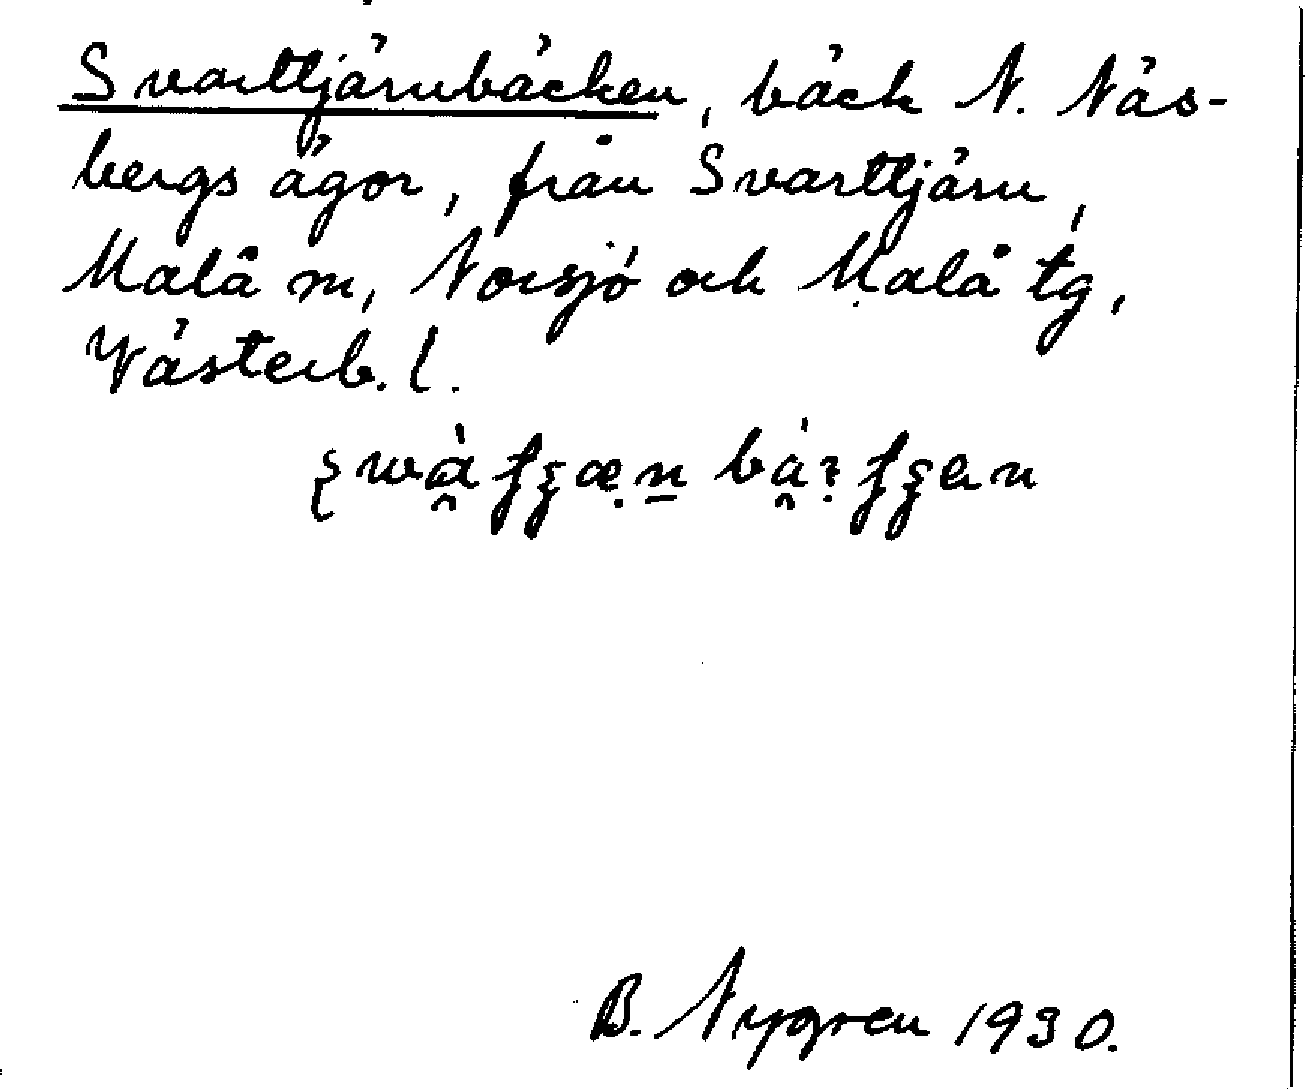 Svarttjärnbäcken, bäck N. Näs-
bergs ägor, från Svarttjärn,
Malå sn, Norsjö och Malå tg,
Västerb. l.
B. Nygren 1930.